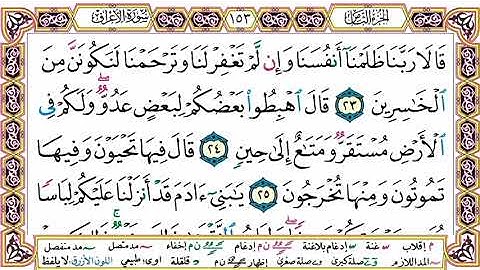 سورة الأعراف ١٥٣ الجزء الثامن
قَالَا رَبَّنَا ظَلَمْنَآ أَنفُسَنَا وَإِن لَّمْ تَغْفِرْ لَنَا وَتَرْحَمْنَا لَنَكُونَنَّ مِنَ
ٱلْخَـٰسِرِينَ ٢٣ قَالَ ٱهْبِطُوا۟ بَعْضُكُمْ لِبَعْضٍ عَدُوٌّ ۖ وَلَكُمْ فِى
ٱلْأَرْضِ مُسْتَقَرٌّ وَمَتَـٰعٌ إِلَىٰ حِينٍ ٢٤ قَالَ فِيهَا تَحْيَوْنَ وَفِيهَا
تَمُوتُونَ وَمِنْهَا تُخْرَجُونَ ٢٥ يَـٰبَنِىٓ ءَادَمَ قَدْ أَنزَلْنَا عَلَيْكُمْ لِبَاسًا
م إقلاب غنة إدغام بلاغنة ن م إدغام ن م إخفاء مد متصل مد منفصل
المد اللازم صلة كبرى وے صلة صغرى إظهار ن م قلقلة اوى؛ طبيعي اللون الأزرق لا يلفظ